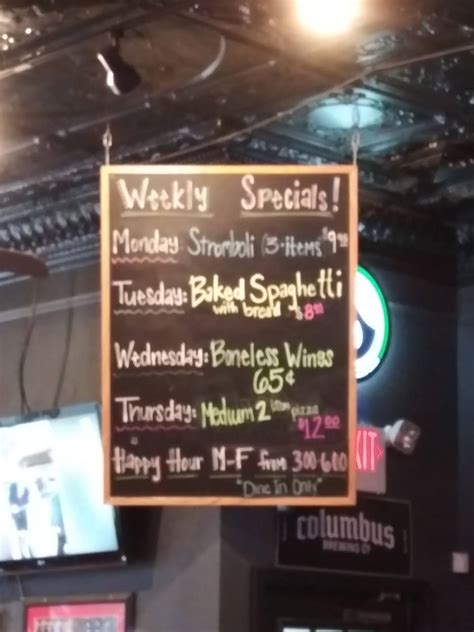 Weekly Specials!
Monday: Stromboli (3-items $9.00
Tuesday: Baked Spaghetti
with bread $8.00
Wednesday: Boneless Wings
65¢
Thursday: Medium 2 item pizza
$12.00
Happy Hour M-F from 3:00-6:00
"Dine In Only"
EXIT
columbus
BREWING CO